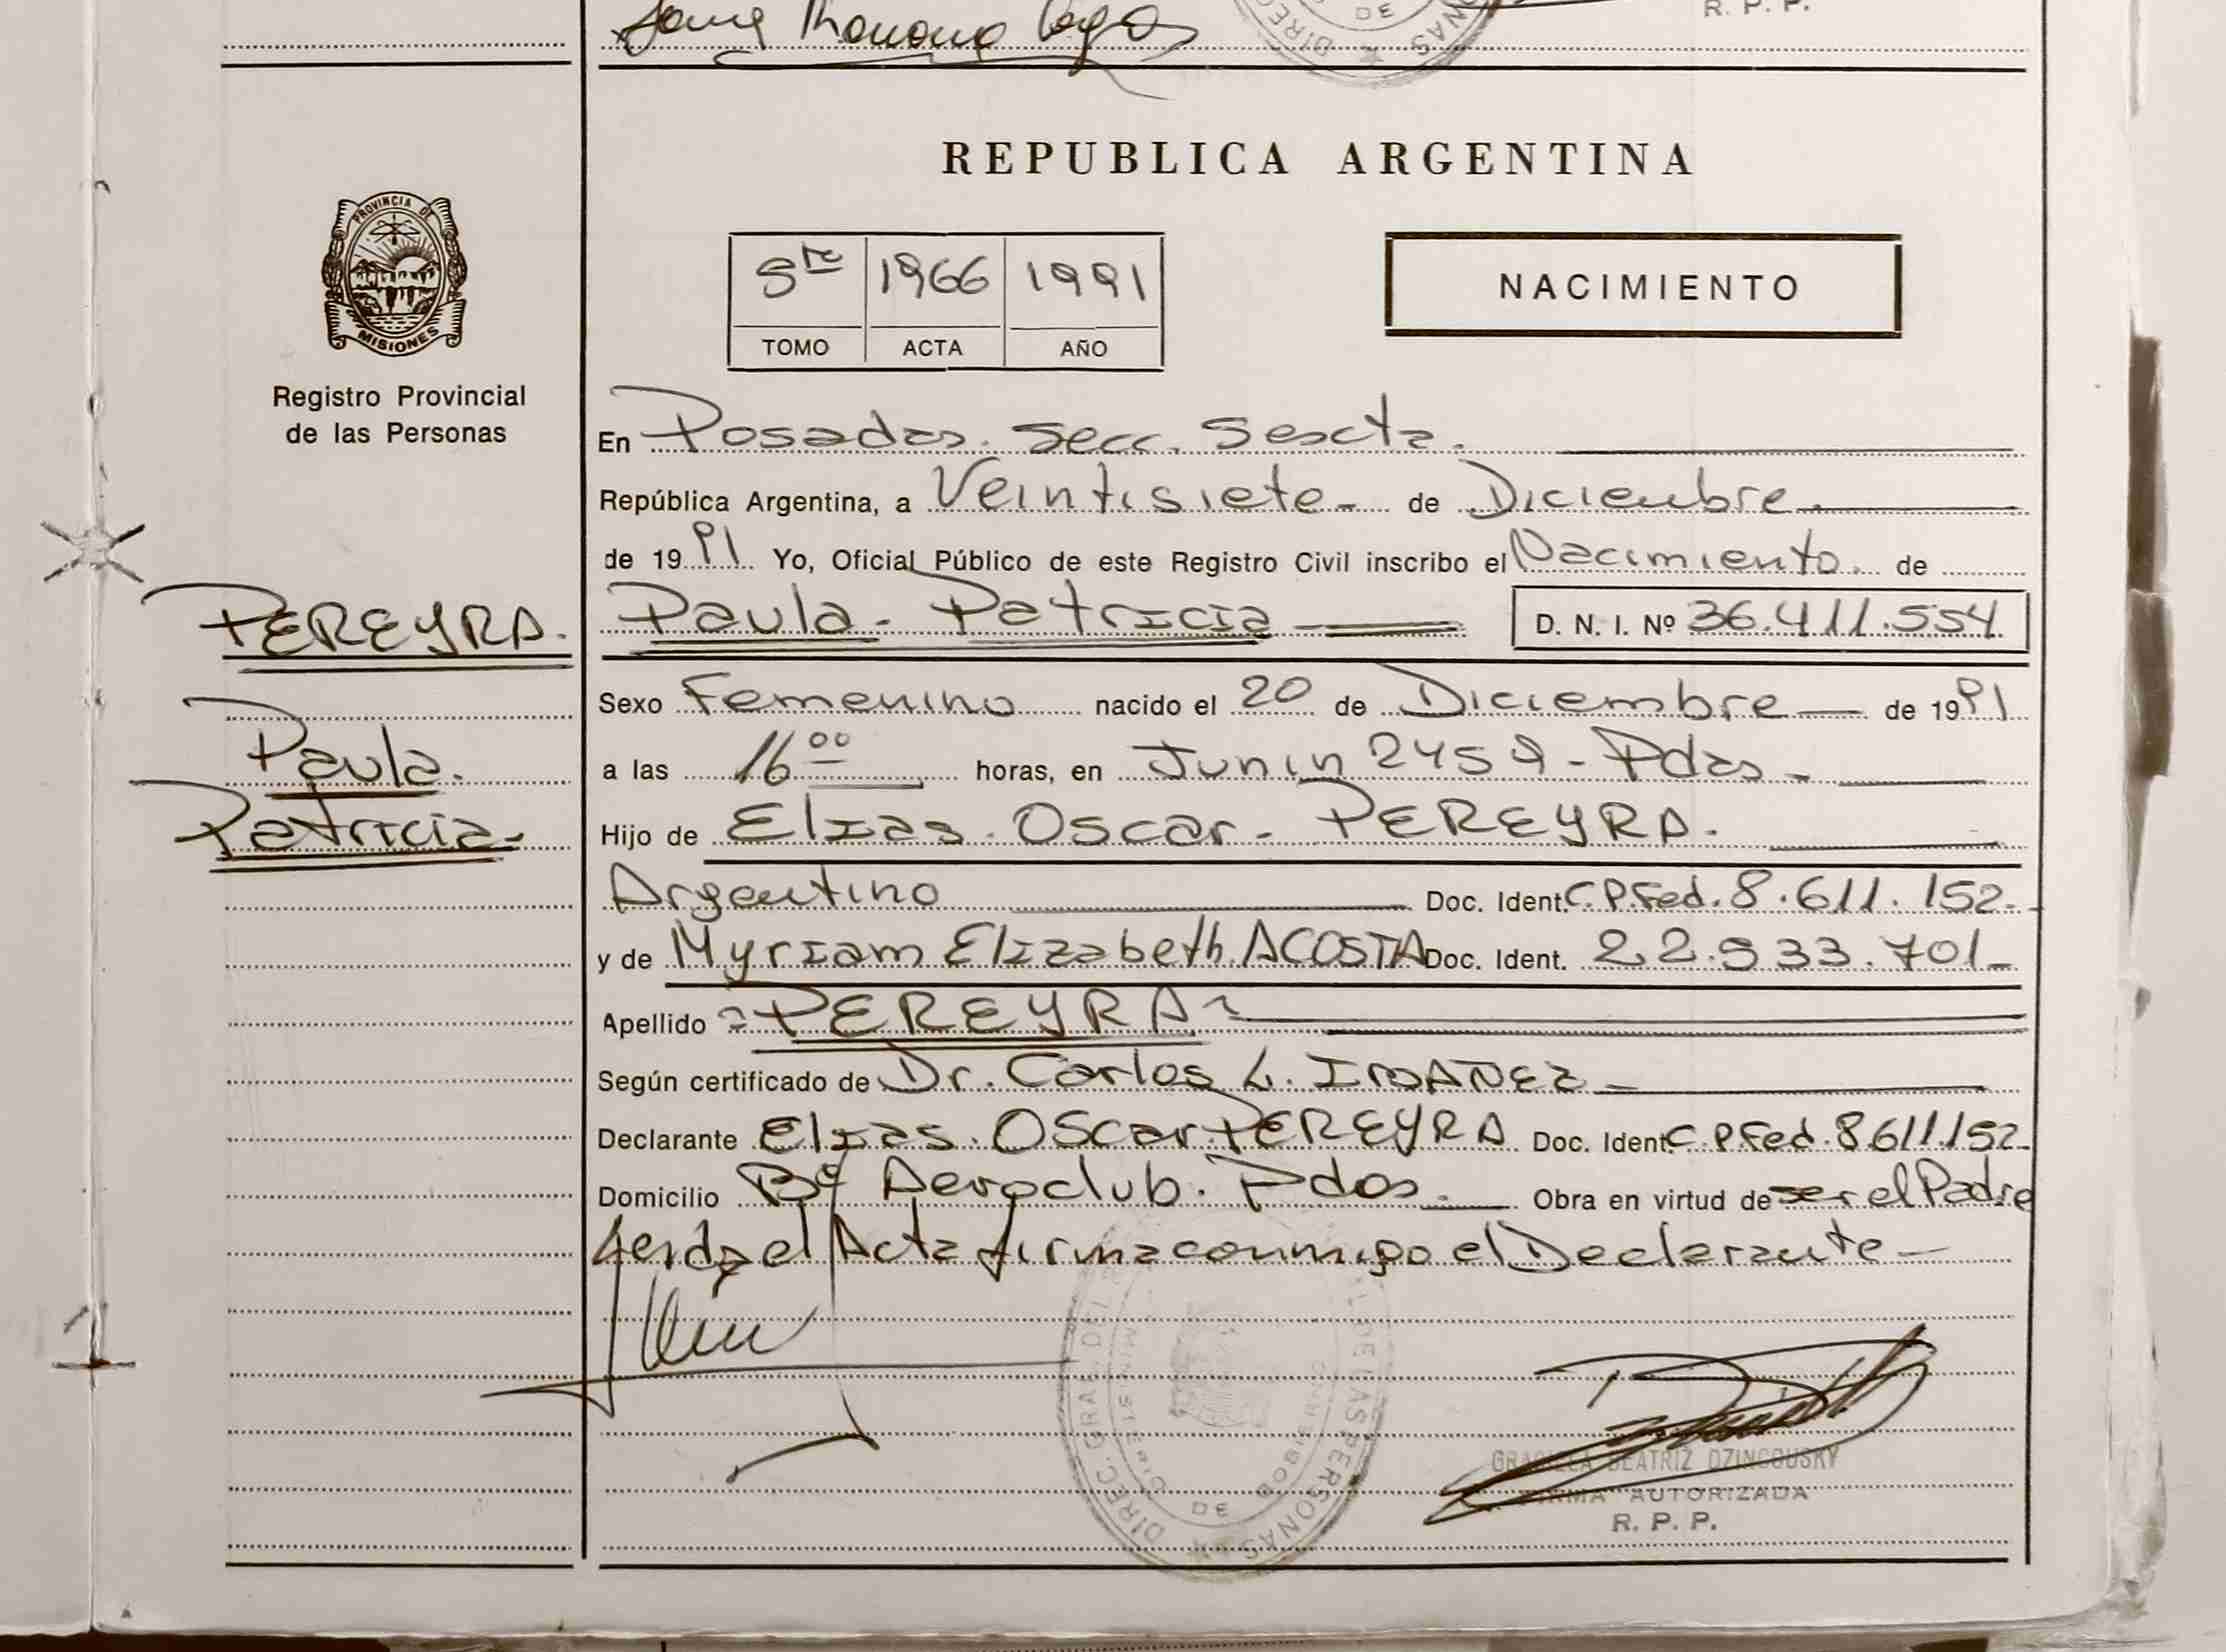 REPUBLICA ARGENTINA
PROVINCIA DE
MISIONES
Registro Provincial
de las Personas
5to 1966 1991
TOMO ACTA AÑO
NACIMIENTO
En Posadas. Secc. Sescta.
República Argentina, a Veintisiete de Diciembre
de 1991 Yo, Oficial Público de este Registro Civil inscribo el Nacimiento de
PEREYRA.
Paula. Patricia D. N. I. Nº 36.411.554
Sexo Femenino nacido el 20 de Diciembre de 1991
Paula.
Patricia.
a las 16 00 horas, en Junin 2459 - Pdas
Hijo de Elias Oscar PEREYRA.
Argentino Doc. Ident. C.P.Fed. 8.611.152
y de Myriam Elizabeth ACOSTA Doc. Ident. 22.533.701
Apellido PEREYRA
Según certificado de Dr. Carlos L.
Declarante Elias Oscar PEREYRA Doc. Ident. C.P.Fed. 8.611.152
Domicilio Bº Aeroclub. Pdas. Obra en virtud de ser el Padre
Leida el Acta firma conmigo el Declarante
DIREC. GRAL. DEL DE LAS PERSONAS
MINISTERIO DE GOBIERNO
GRACIELA BEATRIZ DZINCOUSKY
FIRMA AUTORIZADA
R. P. P.